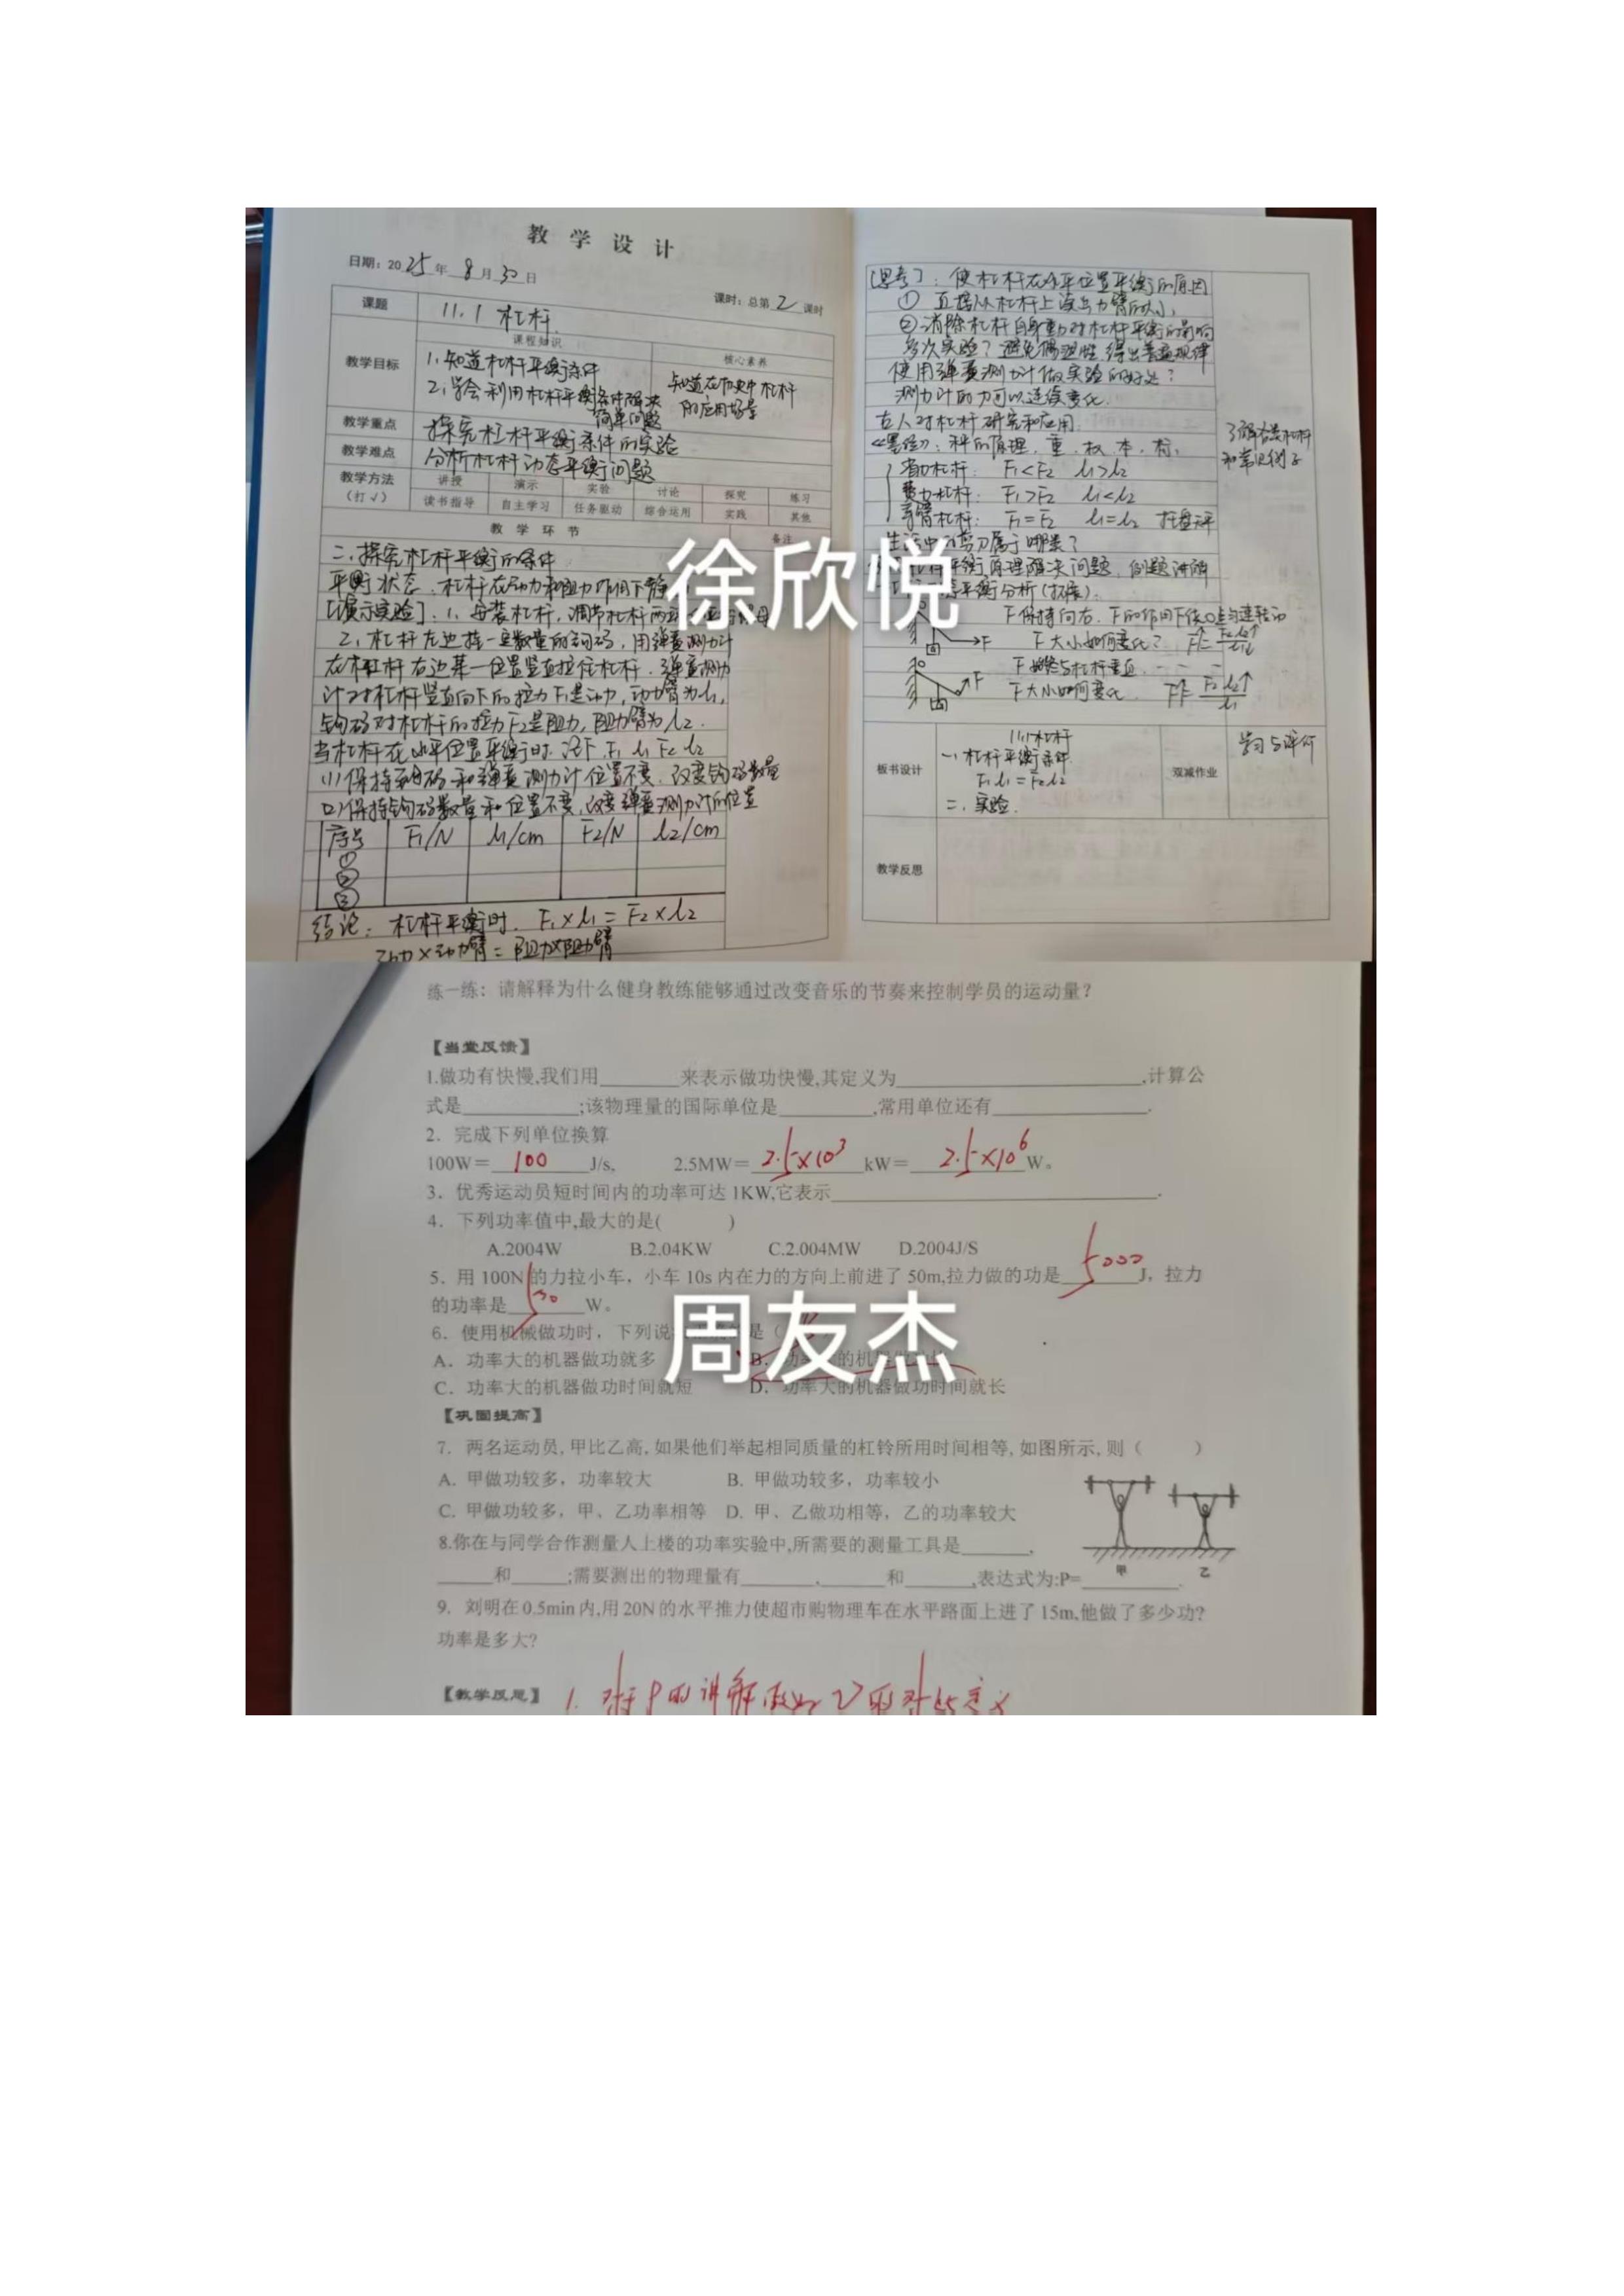 教 学 设 计
日期：2025年 8月 30日
课时：总第 2 课时
课题 11.1 杠杆
教学目标 课程知识 核心素养
1、知道杠杆平衡条件
2、学会利用杠杆平衡条件解决简单问题
知道在历史中杠杆的应用场景
教学重点 探究杠杆平衡条件的实验
教学难点 分析杠杆动态平衡问题
教学方法（打√） 讲授 演示 实验 讨论 探究 练习
读书指导 自主学习 任务驱动 综合运用 实践 其他
教 学 环 节 备注
二、探究杠杆平衡的条件
平衡状态：杠杆在动力和阻力作用下静
[演示实验]：1、安装杠杆，调节杠杆两
2、杠杆左边挂一定数量的钩码，用弹簧测力计
在杠杆右边某一位置竖直拉住杠杆．弹簧测力
计对杠杆竖直向下的拉力F1是动力，动力臂为l1，
钩码对杠杆的拉力F2是阻力，阻力臂为l2．
当杠杆在水平位置平衡时．记下F1 l1 F2 l2
(1)保持钩码和弹簧测力计位置不变．改变钩码数量
(2)保持钩码数量和位置不变，改变弹簧测力计的位置
序号 F1/N l1/cm F2/N l2/cm
①
②
③
结论：杠杆平衡时．F1×l1=F2×l2
动力×动力臂=阻力×阻力臂
[思考]：使杠杆在水平位置平衡的原因
① 直接从杠杆上读出力臂的大小
②消除杠杆自身重力对杠杆平衡的影响
多次实验？避免偶然性，得出普遍规律
使用弹簧测力计做实验的好处？
测力计的力可以连续变化．
古人对杠杆研究和应用：
《墨经》：秤的原理，重、权、本、标，
了解各类杠杆和常见例子
省力杠杆：F1<F2 l1>l2
费力杠杆：F1>F2 l1<l2
等臂杠杆：F1=F2 l1=l2 托盘天平
生活中的剪刀属于哪类？
平衡原理解决问题．例题讲解
态平衡分析（拓展）：
F保持向右．F的作用下绕O点匀速转动
F大小如何变化？ F↑=F2l2↑/l1↓
F始终与杠杆垂直
F大小如何变化． F↑=F2l2↑/l1
板书设计 11.1杠杆
一、杠杆平衡条件
F1l1=F2l2
二、实验．
双减作业 学习与评价
教学反思
徐欣悦
练一练：请解释为什么健身教练能够通过改变音乐的节奏来控制学员的运动量？
【当堂反馈】
1.做功有快慢,我们用________来表示做功快慢,其定义为________________________,计算公
式是____________;该物理量的国际单位是__________,常用单位还有________________.
2．完成下列单位换算
100W＝ 100 J/s, 2.5MW＝ 2.5×10³ kW＝ 2.5×10⁶ W。
3．优秀运动员短时间内的功率可达 1KW,它表示________________________________.
4．下列功率值中,最大的是( )
A.2004W B.2.04KW C.2.004MW D.2004J/S
5．用 100N 的力拉小车，小车 10s 内在力的方向上前进了 50m,拉力做的功是 5000 J，拉力
的功率是 500 W。
6．使用机械做功时，下列说 是（
A．功率大的机器做功就多 B．功 的机器
C．功率大的机器做功时间就短 D．功率大的机器做功时间就长
周友杰
【巩固提高】
7. 两名运动员, 甲比乙高, 如果他们举起相同质量的杠铃所用时间相等, 如图所示, 则（ ）
A. 甲做功较多，功率较大 B. 甲做功较多，功率较小
C. 甲做功较多，甲、乙功率相等 D. 甲、乙做功相等，乙的功率较大
8.你在与同学合作测量人上楼的功率实验中,所需要的测量工具是_______,
______和______;需要测出的物理量有________,_______和_______,表达式为:P=__________.
甲 乙
9. 刘明在 0.5min 内,用 20N 的水平推力使超市购物理车在水平路面上进了 15m,他做了多少功?
功率是多大?
【教学反思】 1. 对于P的讲解